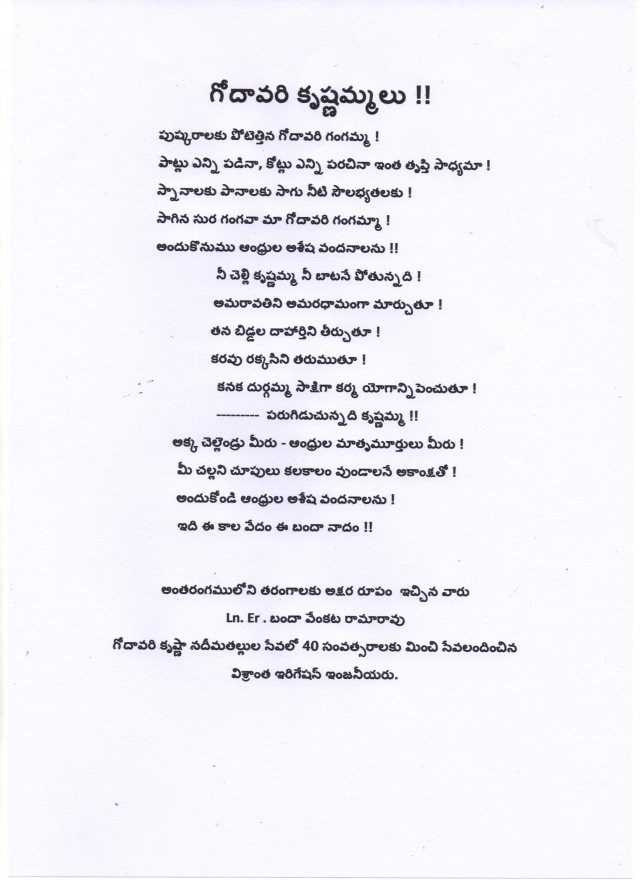 గోదావరి కృష్ణమ్మలు !!
పుష్కరాలకు పోటెత్తిన గోదావరి గంగమ్మ !
పాట్లు ఎన్ని పడినా, కోట్లు ఎన్ని పరచినా ఇంత తృప్తి సాధ్యమా !
స్నానాలకు పానాలకు సాగు నీటి సౌలభ్యతలకు !
సాగిన సుర గంగవా మా గోదావరి గంగమ్మా !
అందుకొనుము ఆంధ్రుల అశేష వందనాలను !!
నీ చెల్లి కృష్ణమ్మ నీ బాటనే పోతున్నది !
అమరావతిని అమరధామంగా మార్చుతూ !
తన బిడ్డల దాహార్తిని తీర్చుతూ !
కరవు రక్కసిని తరుముతూ !
కనక దుర్గమ్మ సాక్షిగా కర్మ యోగాన్నిపెంచుతూ !
--------- పరుగిడుచున్నది కృష్ణమ్మ !!
అక్క చెల్లెండ్రు మీరు - ఆంధ్రుల మాతృమూర్తులు మీరు !
మీ చల్లని చూపులు కలకాలం వుండాలనే అకాంక్షతో !
అందుకోండి ఆంధ్రుల అశేష వందనాలను !
ఇది ఈ కాల వేదం ఈ బందా నాదం !!
అంతరంగములోని తరంగాలకు అక్షర రూపం ఇచ్చిన వారు
Ln. Er . బందా వేంకట రామారావు
గోదావరి కృష్ణా నదీమతల్లుల సేవలో 40 సంవత్సరాలకు మించి సేవలందించిన
విశ్రాంత ఇరిగేషన్ ఇంజనీయరు.